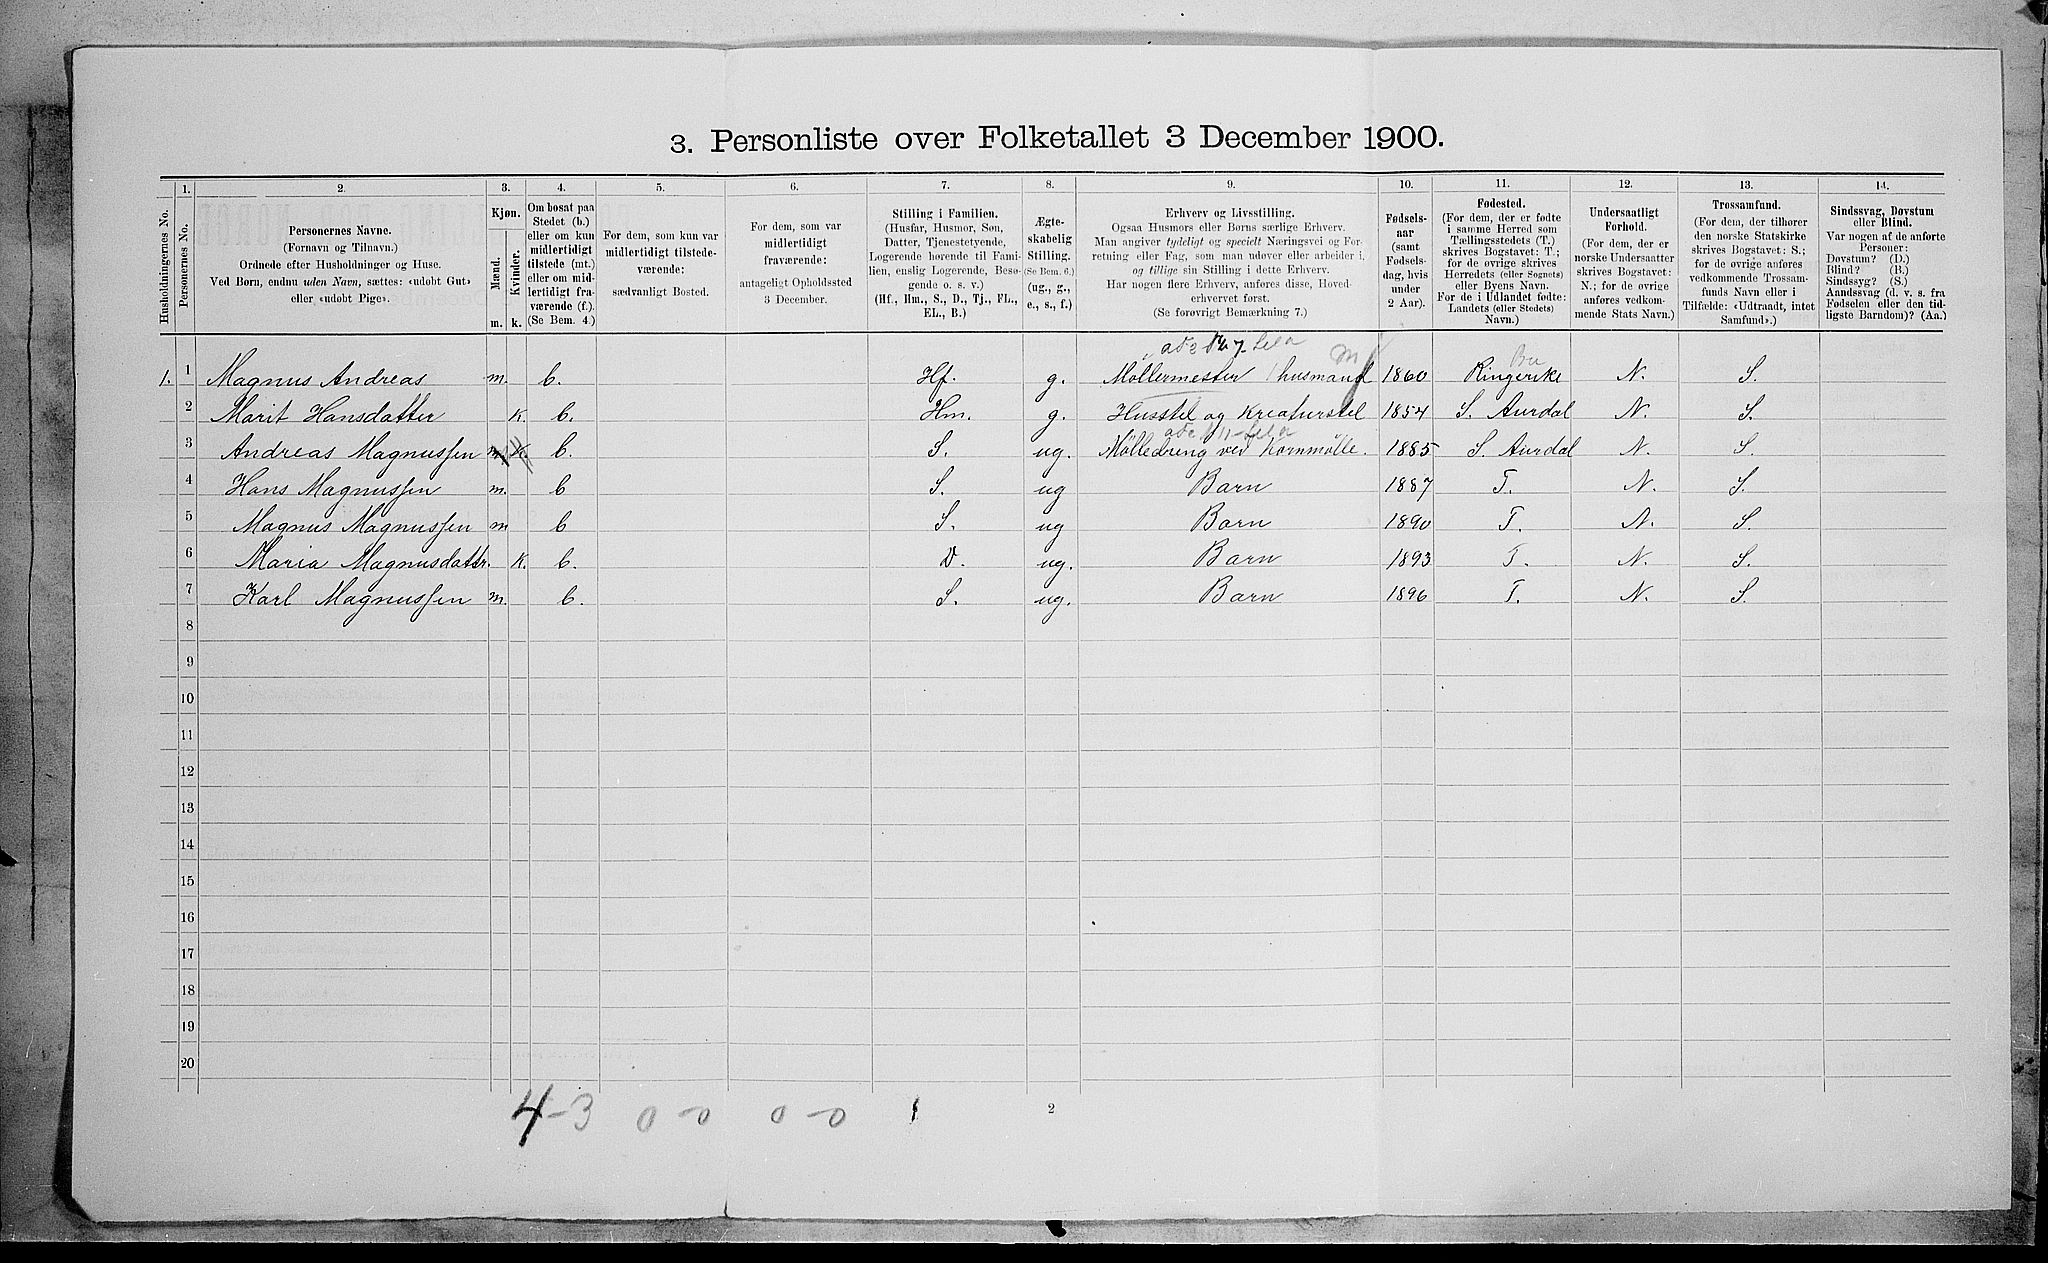 3. Personliste over Folketallet 3 December 1900.
1. 2. 3. 4. 5. 6. 7. 8. 9. 10. 11. 12. 13. 14.
Husholdningernes No.
Personernes No.
Personernes Navne.
(Fornavn og Tilnavn.)
Ordnede efter Husholdninger og Huse.
Ved Børn, endnu uden Navn, sættes: «udøbt Gut»
eller «udøbt Pige».
Kjøn.
Mænd.
Kvinder.
m. k.
Om bosat paa
Stedet (b.)
eller om kun
midlertidigt
tilstede (mt.)
eller om mid-
lertidigt fra-
værende (f.).
(Se Bem. 4.)
For dem, som kun var
midlertidigt tilstede-
værende:
sædvanligt Bosted.
For dem, som var
midlertidigt
fraværende:
antageligt Opholdssted
3 December.
Stilling i Familien.
(Husfar, Husmor, Søn,
Datter, Tjenestetyende,
Logerende hørende til Fami-
lien, enslig Logerende, Besø-
gende o. s. v.)
(Hf., Hm., S., D., Tj., FL.,
EL., B.)
Ægte-
skabelig
Stilling.
(Se Bem. 6.)
(ug., g.,
e., s., f.)
Erhverv og Livsstilling.
Ogsaa Husmors eller Børns særlige Erhverv.
Man angiver tydeligt og specielt Næringsvei og For-
retning eller Fag, som man udøver eller arbeider i,
og tillige sin Stilling i dette Erhverv.
Har nogen flere Erhverv, anføres disse, Hoved-
erhvervet først.
(Se forøvrigt Bemærkning 7.)
Fødsels-
aar
(samt
Fødsels-
dag, hvis
under
2 Aar).
Fødested.
(For dem, der er fødte
i samme Herred som
Tællingsstedets (T.)
skrives Bogstavet: T.;
for de øvrige skrives
Herredets (eller Sognets)
eller Byens Navn.
For de i Udlandet fødte:
Landets (eller Stedets)
Navn.)
Undersaatligt
Forhold.
(For dem, der er
norske Undersaatter
skrives Bogstavet:
N.; for de øvrige
anføres vedkom-
mende Stats Navn.)
Trossamfund.
(For dem, der tilhører
den norske Statskirke
skrives Bogstavet: S.;
for de øvrige anføres
vedkommende Trossam-
funds Navn eller i
Tilfælde: «Udtraadt, intet
Samfund».)
Sindssvag, Døvstum
eller Blind.
Var nogen af de anførte
Personer:
Døvstum? (D.)
Blind? (B.)
Sindssyg? (S.)
Aandssvag (d. v. s. fra
Fødselen eller den tid-
ligste Barndom)? (Aa.)
1. 1 Magnus Andreas m. b. Hf. g. Møllermester husmand 1860 Ringerike Bu N. S.
2 Marit Hansdatter k. b. Hm. g. Husstel og Kreaturstel 1854 S. Aurdal N. S.
3 Andreas Magnussen m k. b. S. ug. Mølledreng ved Kornmølle. 1885 S. Aurdal N. S.
4 Hans Magnussen m. b S. ug Barn 1887 T. N. S.
5 Magnus Magnussen m b S. ug Barn 1890 T. N. S.
6 Maria Magnusdatter. k. b. D. ug. Barn 1893 T. N. S.
7 Karl Magnussen m. b. S. ug. Barn 1896 T. N. S.
8
9
10
11
12
13
14
15
16
17
18
19
20
4-3 0-0 0-0 1 2